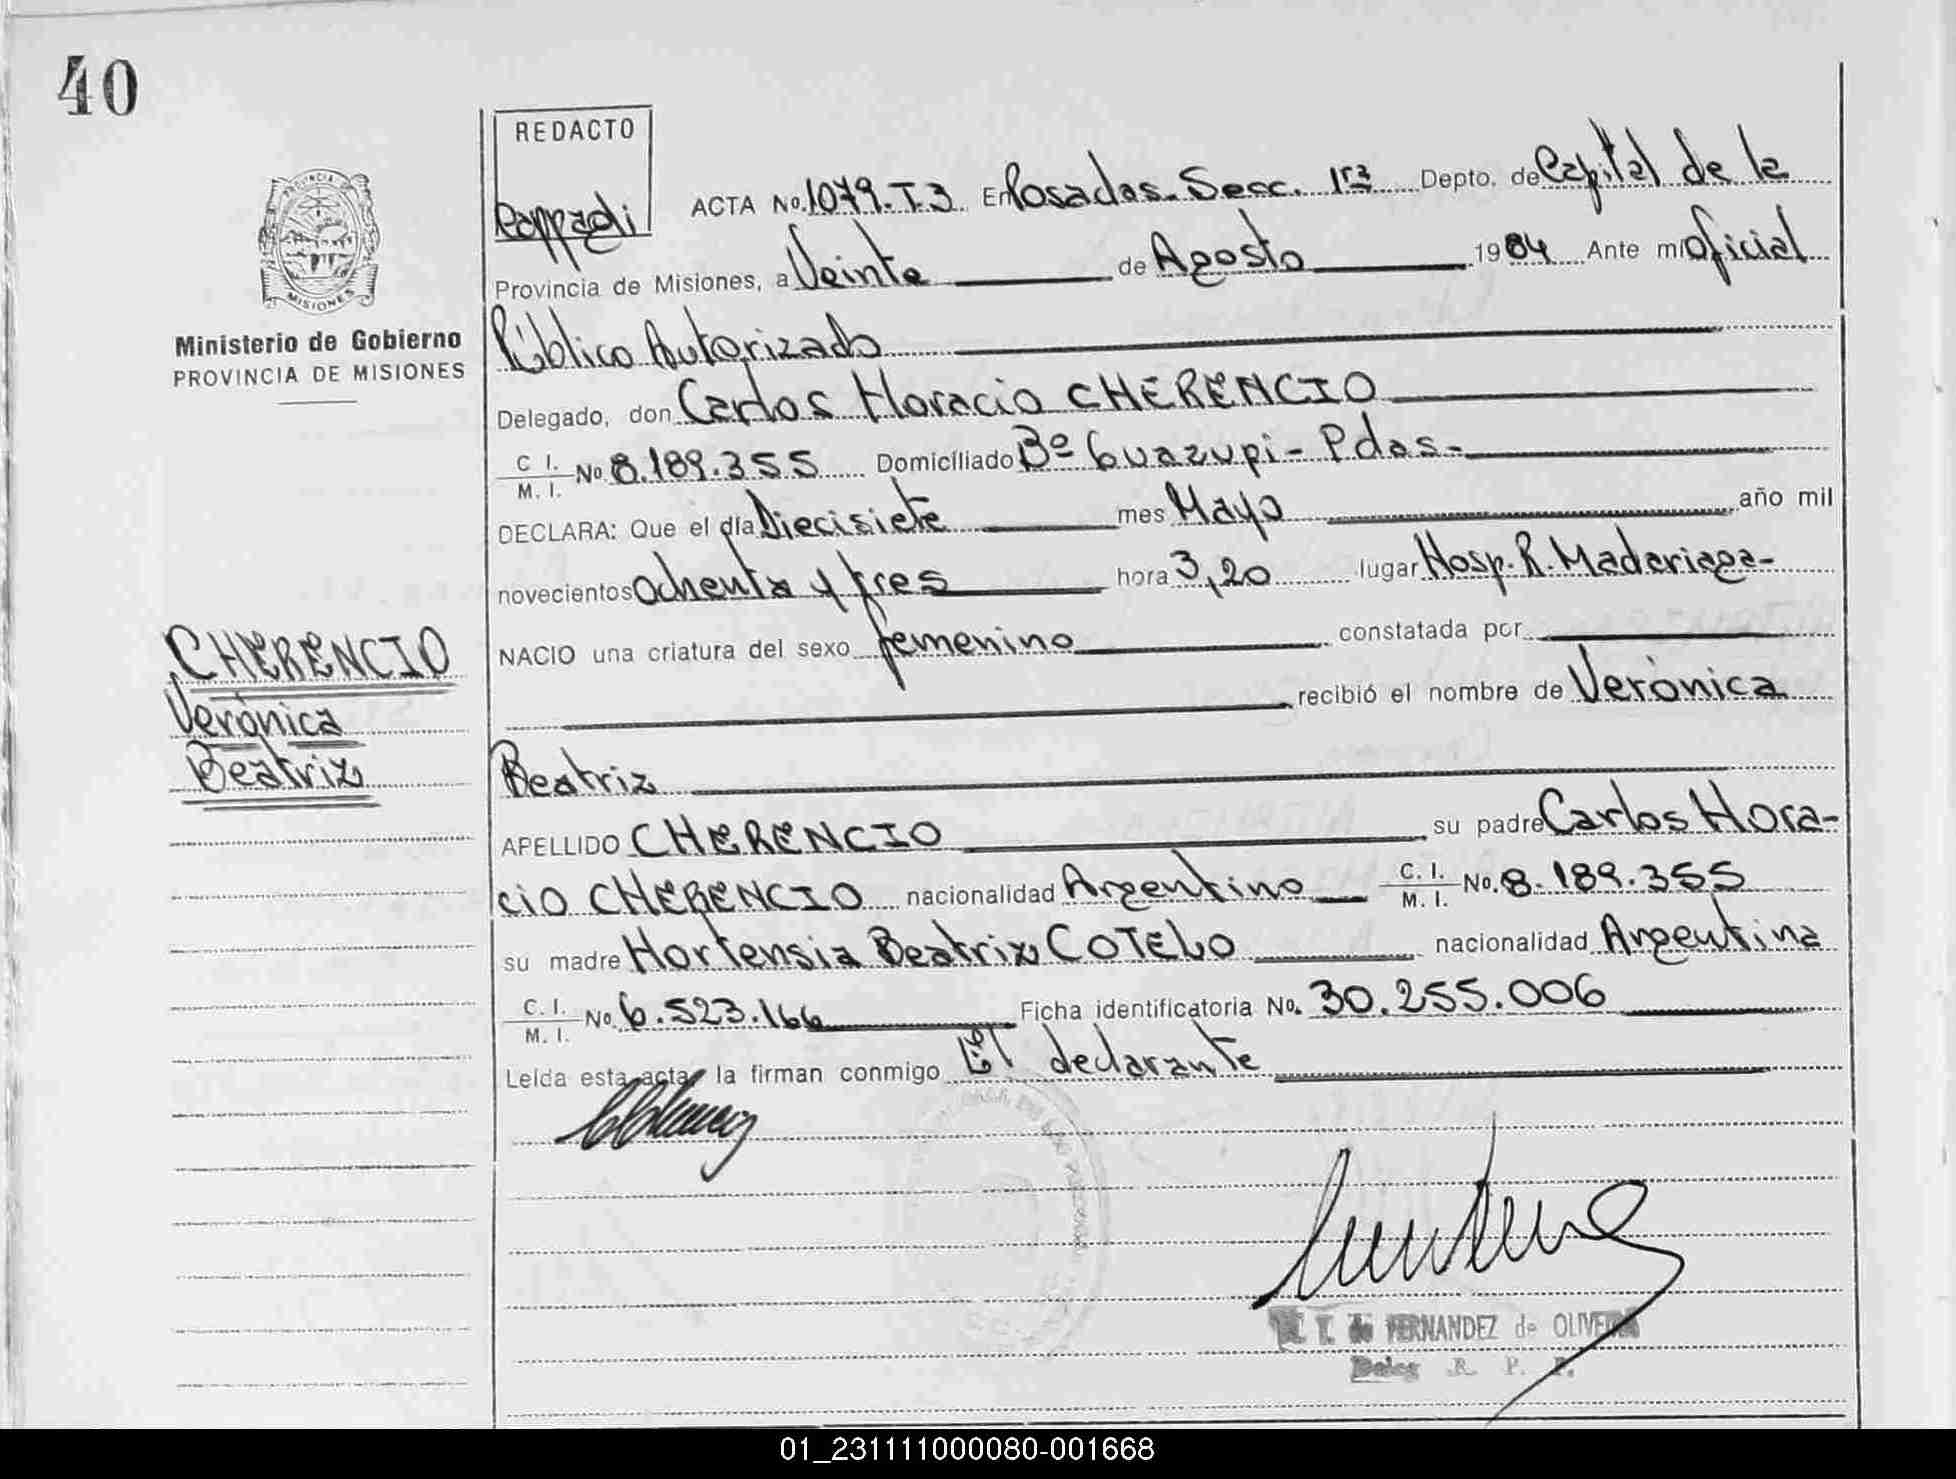 40
REDACTO
ACTA No. 1079.T.3 En Posadas. Secc. 1ra Depto. de Capital de la
Provincia de Misiones, a Veinte de Agosto 1984 Ante mi Oficial
PROVINCIA DE
MISIONES
Ministerio de Gobierno
PROVINCIA DE MISIONES
Público Autorizado
Delegado, don Carlos Horacio CHERENCIO
C. I.
M. I. No. 8.189.355 Domiciliado Bº Guazupi - Pdas -
DECLARA: Que el día Diecisiete mes Mayo año mil
novecientos Ochenta y tres hora 3,20 lugar Hosp. R. Madariaga -
NACIO una criatura del sexo femenino constatada por
recibió el nombre de Verónica
Beatriz
CHERENCIO
Verónica
Beatriz
APELLIDO CHERENCIO su padre Carlos Hora-
cio CHERENCIO nacionalidad Argentino C. I. M. I. No. 8.189.355
su madre Hortensia Beatriz COTELO nacionalidad Argentina
C. I.
M. I. No. 6.523.166 Ficha identificatoria No. 30.255.006
Leída esta acta, la firman conmigo El declarante
de FERNANDEZ de OLIVEIRA
Deleg R. P. P.
01_231111000080-001668